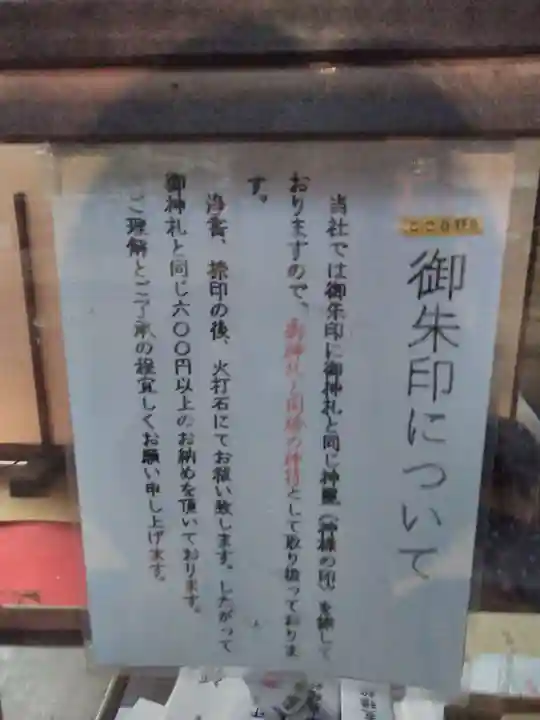 御朱印について
当社では御朱印に御神札と同じ神璽（神様の印）を捺して
おりますので、御神札と同様の神符として取り扱っておりま
す。
浄書、捺印の後、火打石にてお祓い致します。したがって
御神札と同じ六〇〇円以上のお納めを頂いております。
ご理解とご了承の程宜しくお願い申し上げます。